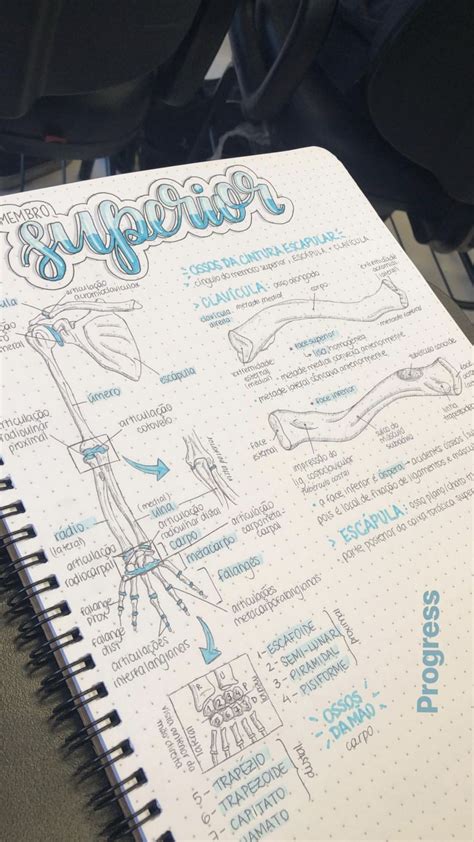 MEMBRO
superior
articulação
acromioclavicular
escápula
úmero
articulação
radioulnar
proximal
articulação
cotovelo
rádio
(lateral)
(medial)
ulna
articulação
radioulnar distal
carpo
articulação
carpometa-
carpal
metacarpo
articulação
radiocarpal
falanges
falange
prox.
falange
distal
articulações
interfalangianas
articulações
metacarpofalangianas
vista anterior da
mão direita
1- ESCAFOIDE
2- SEMI-LUNAR
3- PIRAMIDAL
4- PISIFORME
proximal
5- TRAPÉZIO
6- TRAPEZOIDE
7- CAPITATO
HAMATO
distal
OSSOS
DA MÃO
carpo
OSSOS DA CINTURA ESCAPULAR
cíngulo do membro superior: ESCÁPULA + CLAVÍCULA
CLAVÍCULA: osso alongado
clavícula
direita
metade medial
corpo
extremidade
acromial
(lateral)
extremidade
esternal
(medial)
face superior
lisa, homogênea
metade medial convexa anteriormente
metade lateral côncava anteriormente
face inferior
face
esternal
impressão do
lig. costoclavicular
sulco do
músculo
subclávio
a face inferior é áspera
pois é local de fixação de ligamentos e
ESCÁPULA: osso plano/chato
parte posterior da caixa torácica
Progress